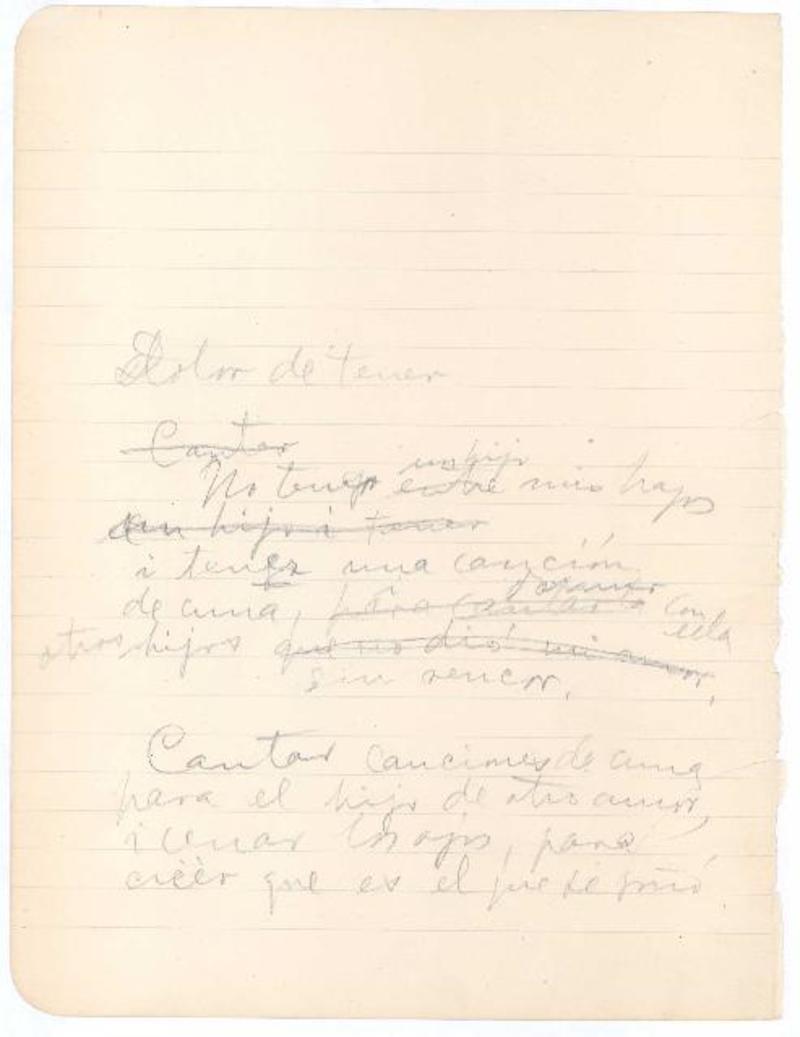 Dolor de tener
Cantar
un hijo
No tengo entre mis brazos
un hijo i tener
i tengo una canción
de cuna, para cantar con
ella
otros hijos que no dió mi amor,
sin rencor.
Cantar canciones de cuna
para el hijo de otro amor,
i cerrar los ojos, para
creer que es el que se